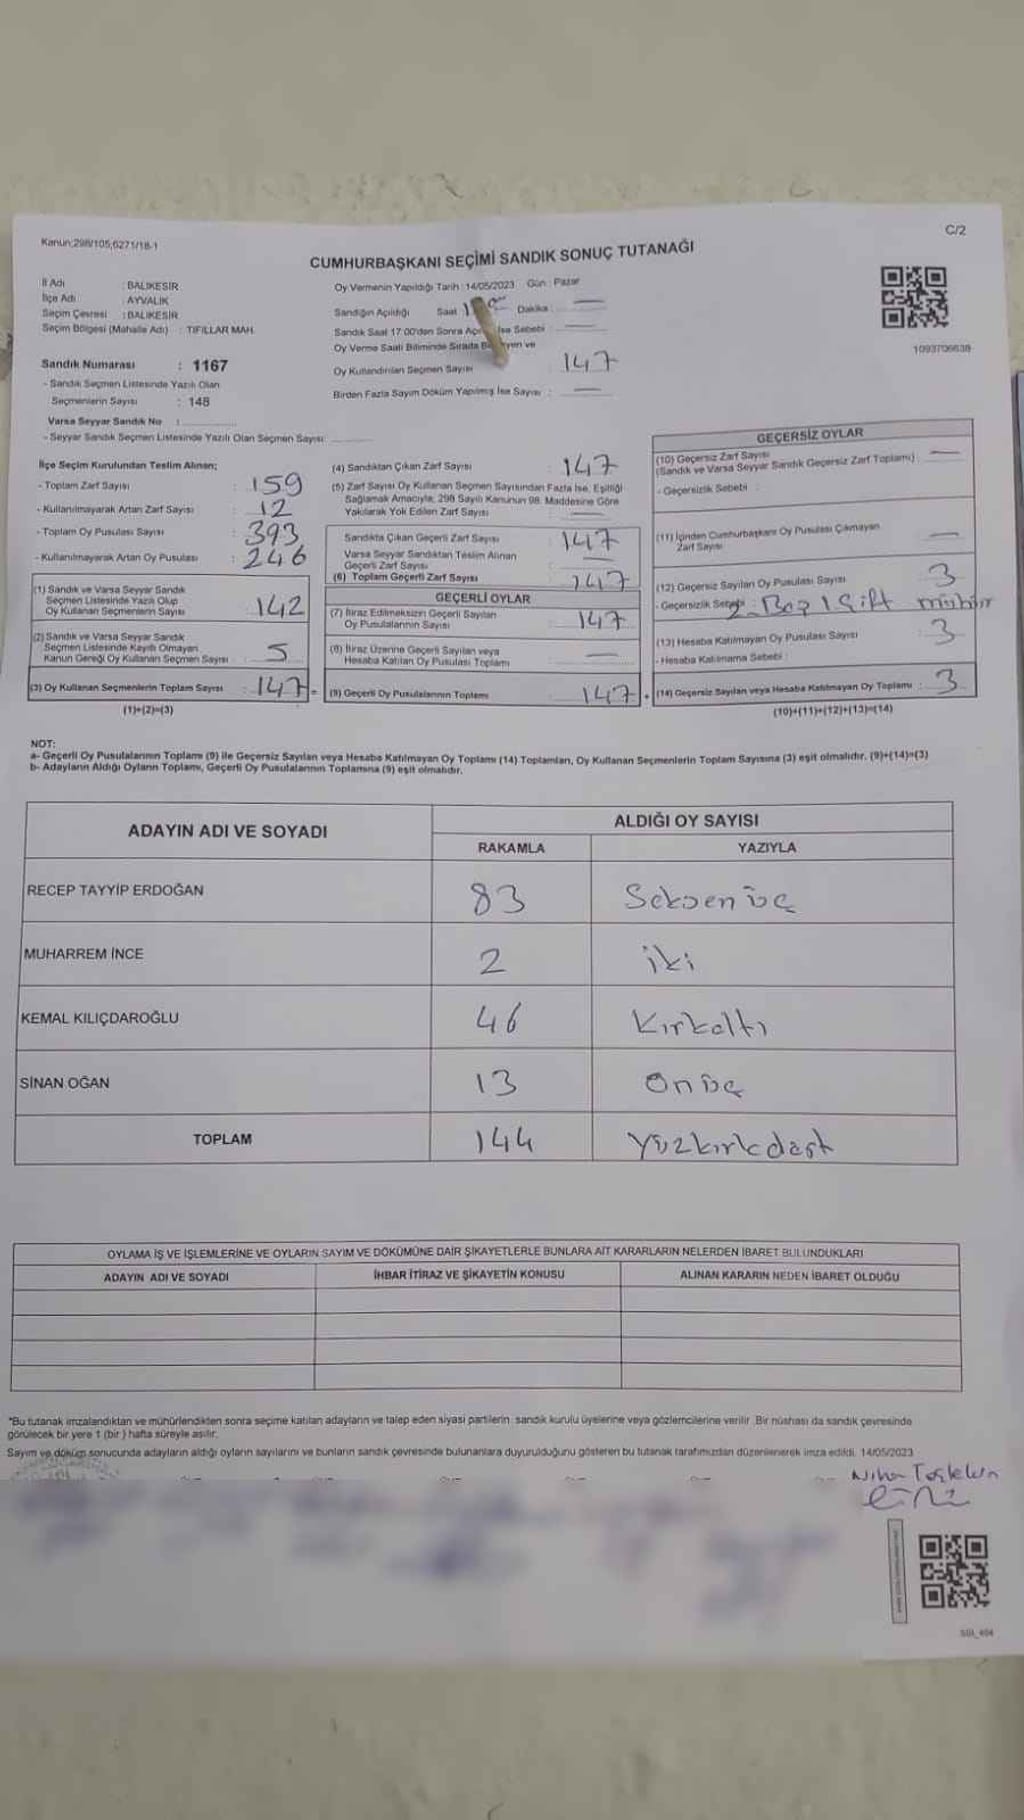 Kanun;298/105,6271/18-1
C/2
CUMHURBAŞKANI SEÇİMİ SANDIK SONUÇ TUTANAĞI
İl Adı : BALIKESİR
İlçe Adı : AYVALIK
Seçim Çevresi : BALIKESİR
Seçim Bölgesi (Mahalle Adı) : TIFILLAR MAH.
Sandık Numarası : 1167
- Sandık Seçmen Listesinde Yazılı Olan
Seçmenlerin Sayısı : 148
Varsa Seyyar Sandık No :
- Seyyar Sandık Seçmen Listesinde Yazılı Olan Seçmen Sayısı:
Oy Vermenin Yapıldığı Tarih :14/05/2023 Gün : Pazar
Sandığın Açıldığı Saat Dakika : —
Sandık Saat 17:00'den Sonra İse Sebebi : —
Oy Verme Saati Bitiminde Sırada ve
Oy Kullandırılan Seçmen Sayısı : 147
Birden Fazla Sayım Döküm Yapılmış İse Sayısı : —
1093706638
İlçe Seçim Kurulundan Teslim Alınan;
- Toplam Zarf Sayısı : 159
- Kullanılmayarak Artan Zarf Sayısı : 12
- Toplam Oy Pusulası Sayısı : 393
- Kullanılmayarak Artan Oy Pusulası : 246
(1) Sandık ve Varsa Seyyar Sandık
Seçmen Listesinde Yazılı Olup
Oy Kullanan Seçmenlerin Sayısı : 142
(2) Sandık ve Varsa Seyyar Sandık
Seçmen Listesinde Kayıtlı Olmayan
Kanun Gereği Oy Kullanan Seçmen Sayısı : 5
(3) Oy Kullanan Seçmenlerin Toplam Sayısı : 147 =
(1)+(2)=(3)
(4) Sandıktan Çıkan Zarf Sayısı : 147
(5) Zarf Sayısı Oy Kullanan Seçmen Sayısından Fazla İse, Eşitliği
Sağlamak Amacıyla; 298 Sayılı Kanunun 98. Maddesine Göre
Yakılarak Yok Edilen Zarf Sayısı : —
Sandıkta Çıkan Geçerli Zarf Sayısı : 147
Varsa Seyyar Sandıktan Teslim Alınan
Geçerli Zarf Sayısı : —
(6) Toplam Geçerli Zarf Sayısı : 147
GEÇERLİ OYLAR
(7) İtiraz Edilmeksizin Geçerli Sayılan
Oy Pusulalarının Sayısı : 147
(8) İtiraz Üzerine Geçerli Sayılan veya
Hesaba Katılan Oy Pusulası Toplamı : —
(9) Geçerli Oy Pusulalarının Toplamı : 147 +
GEÇERSİZ OYLAR
(10) Geçersiz Zarf Sayısı
(Sandık ve Varsa Seyyar Sandık Geçersiz Zarf Toplamı) : —
- Geçersizlik Sebebi :
(11) İçinden Cumhurbaşkanı Oy Pusulası Çıkmayan
Zarf Sayısı : —
(12) Geçersiz Sayılan Oy Pusulası Sayısı : 3
- Geçersizlik Sebebi : 2-Boş 1 Çift mühür
(13) Hesaba Katılmayan Oy Pusulası Sayısı : 3
- Hesaba Katılmama Sebebi :
(14) Geçersiz Sayılan veya Hesaba Katılmayan Oy Toplamı : 3
(10)+(11)+(12)+(13)=(14)
NOT:
a- Geçerli Oy Pusulalarının Toplamı (9) ile Geçersiz Sayılan veya Hesaba Katılmayan Oy Toplamı (14) Toplamları, Oy Kullanan Seçmenlerin Toplam Sayısına (3) eşit olmalıdır. (9)+(14)=(3)
b- Adayların Aldığı Oyların Toplamı, Geçerli Oy Pusulalarının Toplamına (9) eşit olmalıdır.
ADAYIN ADI VE SOYADI
ALDIĞI OY SAYISI
RAKAMLA YAZIYLA
RECEP TAYYİP ERDOĞAN 83 Seksen üç
MUHARREM İNCE 2 iki
KEMAL KILIÇDAROĞLU 46 Kırkaltı
SİNAN OĞAN 13 Onüç
TOPLAM 144 Yüzkırkdört
OYLAMA İŞ VE İŞLEMLERİNE VE OYLARIN SAYIM VE DÖKÜMÜNE DAİR ŞİKAYETLERLE BUNLARA AİT KARARLARIN NELERDEN İBARET BULUNDUKLARI
ADAYIN ADI VE SOYADI İHBAR İTİRAZ VE ŞİKAYETİN KONUSU ALINAN KARARIN NEDEN İBARET OLDUĞU
*Bu tutanak imzalandıktan ve mühürlendikten sonra seçime katılan adayların ve talep eden siyasi partilerin sandık kurulu üyelerine veya gözlemcilerine verilir. Bir nüshası da sandık çevresinde
görülecek bir yere 1 (bir) hafta süreyle asılır.
Sayım ve döküm sonucunda adayların aldığı oyların sayılarını ve bunların sandık çevresinde bulunanlara duyurulduğunu gösteren bu tutanak tarafımızdan düzenlenerek imza edildi. 14/05/2023